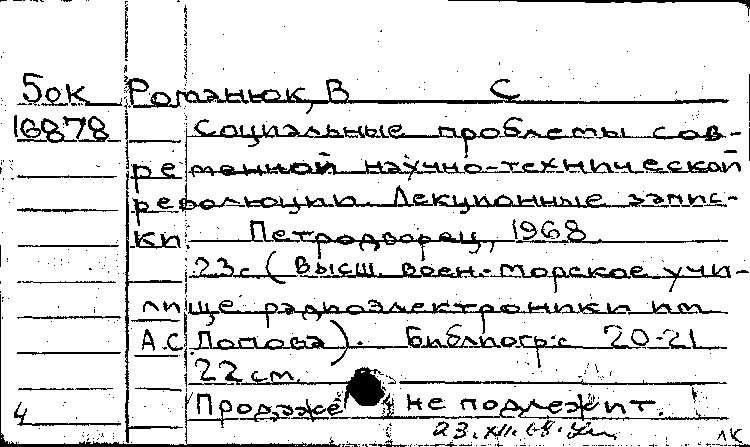 5ок Романюк, В С
16878 Социальные проблемы сов-
ременной научно-технической
революции. Лекционные запис-
ки. Петродворец, 1968.
23с (Высш. воен.-морское учи-
лище радиоэлектроники им
А.С.Попова). Библиогр:с 20-21
22 см.
Продаже не подлежит.
4 23.XII.68.
ЛК